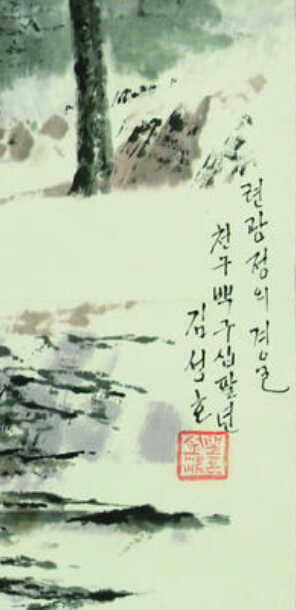 련광정의 겨울
천구백구십팔년
김성호